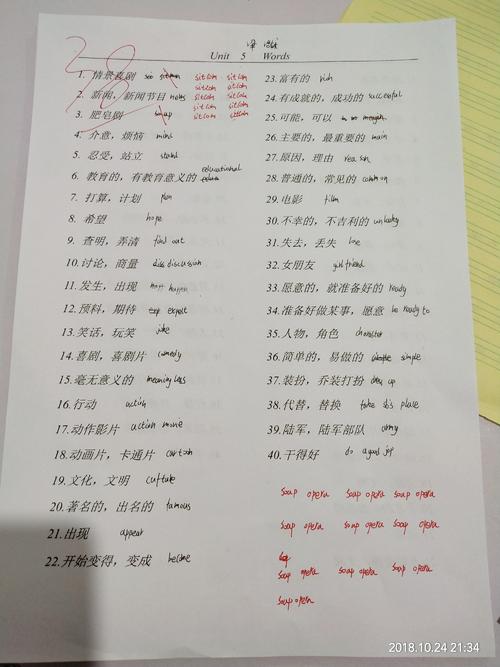 38
Unit 5 Words
1. 情景喜剧 sitcom sitcom
sitcom sitcom
2. 新闻，新闻节目 news sitcom sitcom
sitcom sitcom
3. 肥皂剧 soap sitcom sitcom
4. 介意，烦恼 mind
5. 忍受，站立 stand
6. 教育的，有教育意义的 educational
7. 打算，计划 plan
8. 希望 hope
9. 查明，弄清 find out
10. 讨论，商量 discussion
11. 发生，出现 happen
12. 预料，期待 expect
13. 笑话，玩笑 joke
14. 喜剧，喜剧片 comedy
15. 毫无意义的 meaningless
16. 行动 action
17. 动作影片 action movie
18. 动画片，卡通片 cartoon
19. 文化，文明 culture
20. 著名的，出名的 famous
21. 出现 appear
22. 开始变得，变成 become
23. 富有的 rich
24. 有成就的，成功的 successful
25. 可能，可以
26. 主要的，最重要的 main
27. 原因，理由 reason
28. 普通的，常见的 common
29. 电影 film
30. 不幸的，不吉利的 unlucky
31. 失去，丢失 lose
32. 女朋友 girlfriend
33. 愿意的，就准备好的 ready
34. 准备好做某事，愿意 be ready to
35. 人物，角色 character
36. 简单的，易做的 simple
37. 装扮，乔装打扮 dress up
38. 代替，替换 take sb's place
39. 陆军，陆军部队 army
40. 干得好 do a good jop
soap opera soap opera soap opera
soap opera soap opera soap opera
soap opera soap opera soap opera
soap opera
2018.10.24 21:34